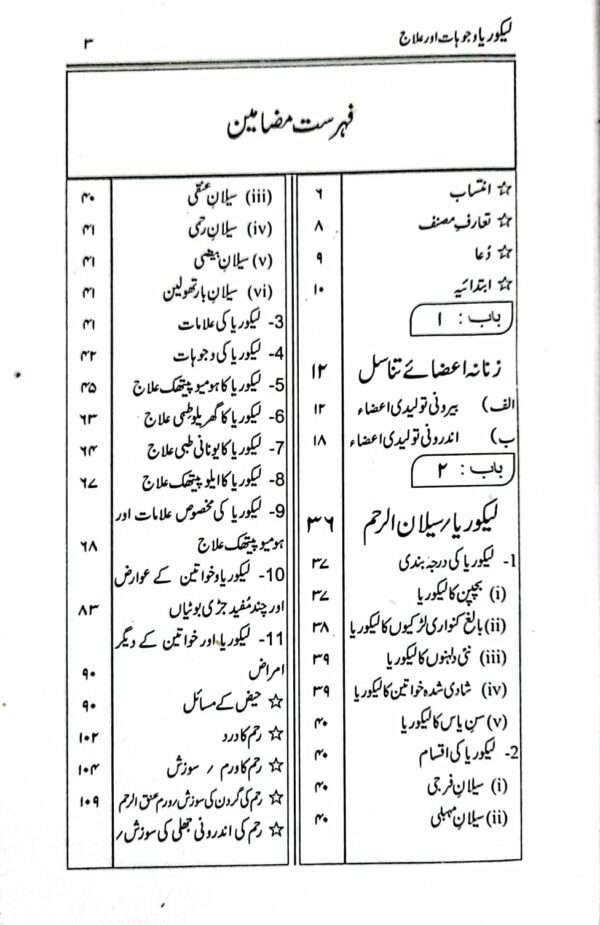 لیکوریا وجوہات اور علاج ۳
فہرست مضامین
☆ انتساب ۶
☆ تعارف مصنف ۸
☆ دُعا ۹
☆ ابتدائیہ ۱۰
باب : ۱
زنانہ اعضائے تناسل ۱۲
الف) بیرونی تولیدی اعضاء ۱۲
ب) اندرونی تولیدی اعضاء ۱۸
باب : ۲
لیکوریا / سیلان الرحم ۳۶
1- لیکوریا کی درجہ بندی ۳۷
(i) بچپن کا لیکوریا ۳۷
(ii) بالغ کنواری لڑکیوں کا لیکوریا ۳۸
(iii) نئی دلہنوں کا لیکوریا ۳۹
(iv) شادی شدہ خواتین کا لیکوریا ۳۹
(v) سنِ یاس کا لیکوریا ۴۰
2- لیکوریا کی اقسام ۴۰
(i) سیلانِ فرجی ۴۰
(ii) سیلانِ مہبلی ۴۰
(iii) سیلانِ عنقی ۴۰
(iv) سیلانِ رحمی ۴۱
(v) سیلانِ بیضی ۴۱
(vi) سیلانِ بارتھولین ۴۱
3- لیکوریا کی علامات ۴۱
4- لیکوریا کی وجوہات ۴۲
5- لیکوریا کا ہومیوپیتھک علاج ۴۵
6- لیکوریا کا گھریلو طبی علاج ۶۳
7- لیکوریا کا یونانی طبی علاج ۶۴
8- لیکوریا کا ایلوپیتھک علاج ۶۷
9- لیکوریا کی مخصوص علامات اور
ہومیوپیتھک علاج ۶۸
10- لیکوریا و خواتین کے عوارض
اور چند مُفید جڑی بوٹیاں ۸۳
11- لیکوریا اور خواتین کے دیگر
امراض ۹۰
☆ حیض کے مسائل ۹۰
☆ رحم کا درد ۱۰۲
☆ رحم کا ورم / سوزش ۱۰۴
☆ رحم کی گردن کی سوزش / ورم عنق الرحم ۱۰۹
☆ رحم کی اندرونی جھلی کی سوزش /